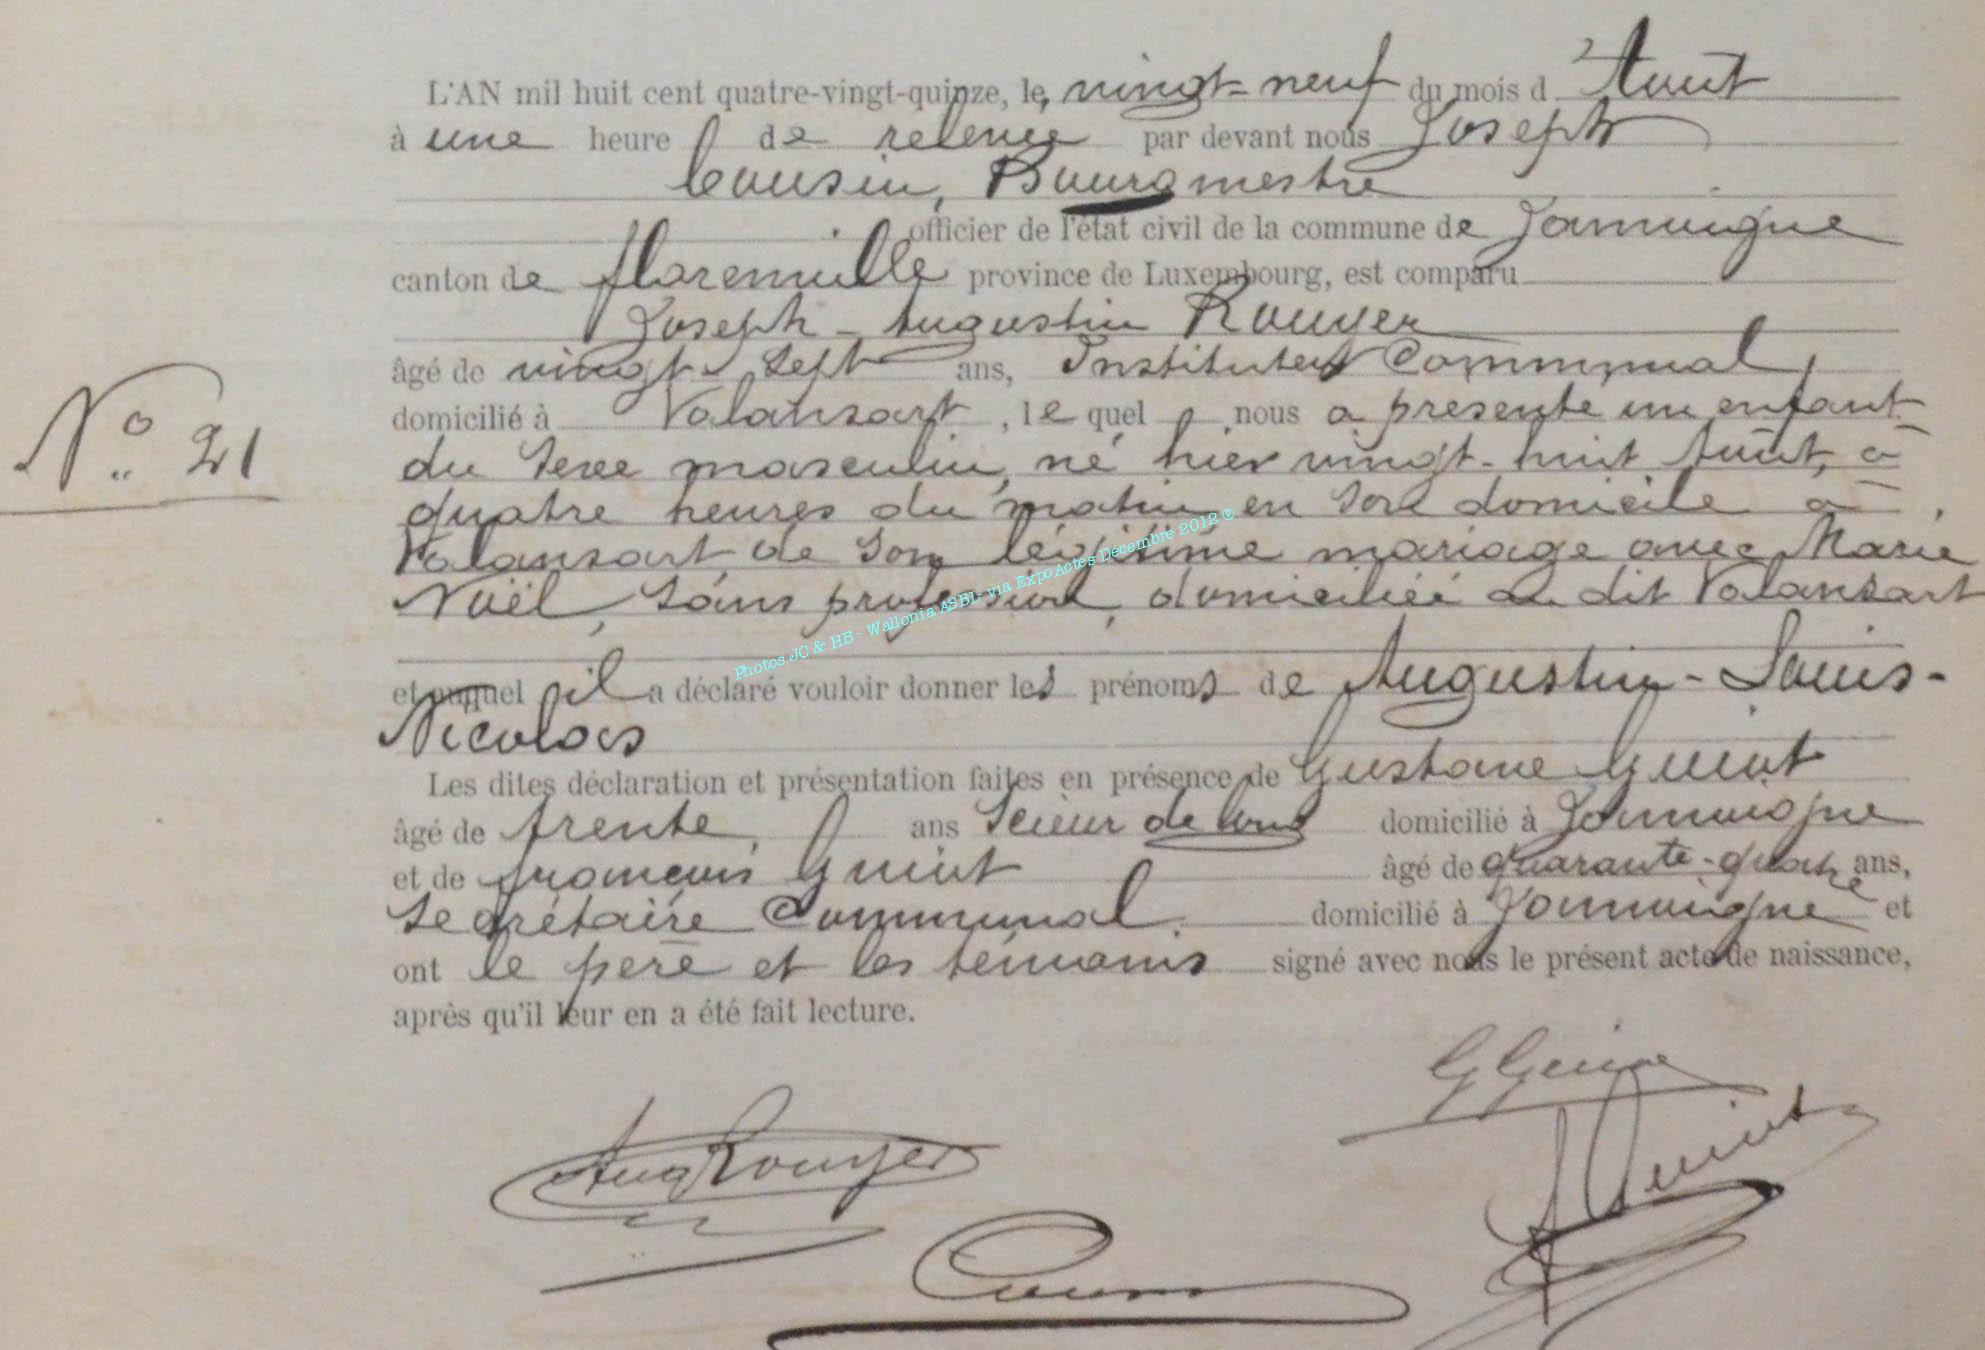 L'AN mil huit cent quatre-vingt-quinze, le, vingt-neuf du mois d'Août
à une heure de relevée par devant nous Joseph
Cousin, Bourgmestre
officier de l'état civil de la commune de Jamoigne
canton de Florenville province de Luxembourg, est comparu
Joseph-Augustin Rouyer
âgé de vingt-sept ans, Instituteur Communal,
domicilié à Valansart, lequel nous a présenté un enfant
N° 21
du sexe masculin, né hier vingt-huit Août, à
quatre heures du matin en son domicile à
Valansart, de son légitime mariage avec Marie
Noël, sans profession, domiciliée au dit Valansart
Photos JC & HB - Wallonia ASBL- via ExpoActes Décembre 2012 ®
et auquel il a déclaré vouloir donner les prénoms de Augustin-Louis-
Nicolas
Les dites déclaration et présentation faites en présence de Gustave Guiot
âgé de trente, ans Scieur de long domicilié à Jamoigne
et de françois Guiot âgé de quarante-quatre ans,
Secrétaire Communal. domicilié à Jamoigne et
ont le père et les témoins signé avec nous le présent acte de naissance,
après qu'il leur en a été fait lecture.
G Guiot
Aug Rouyer
F Guiot
Cousin